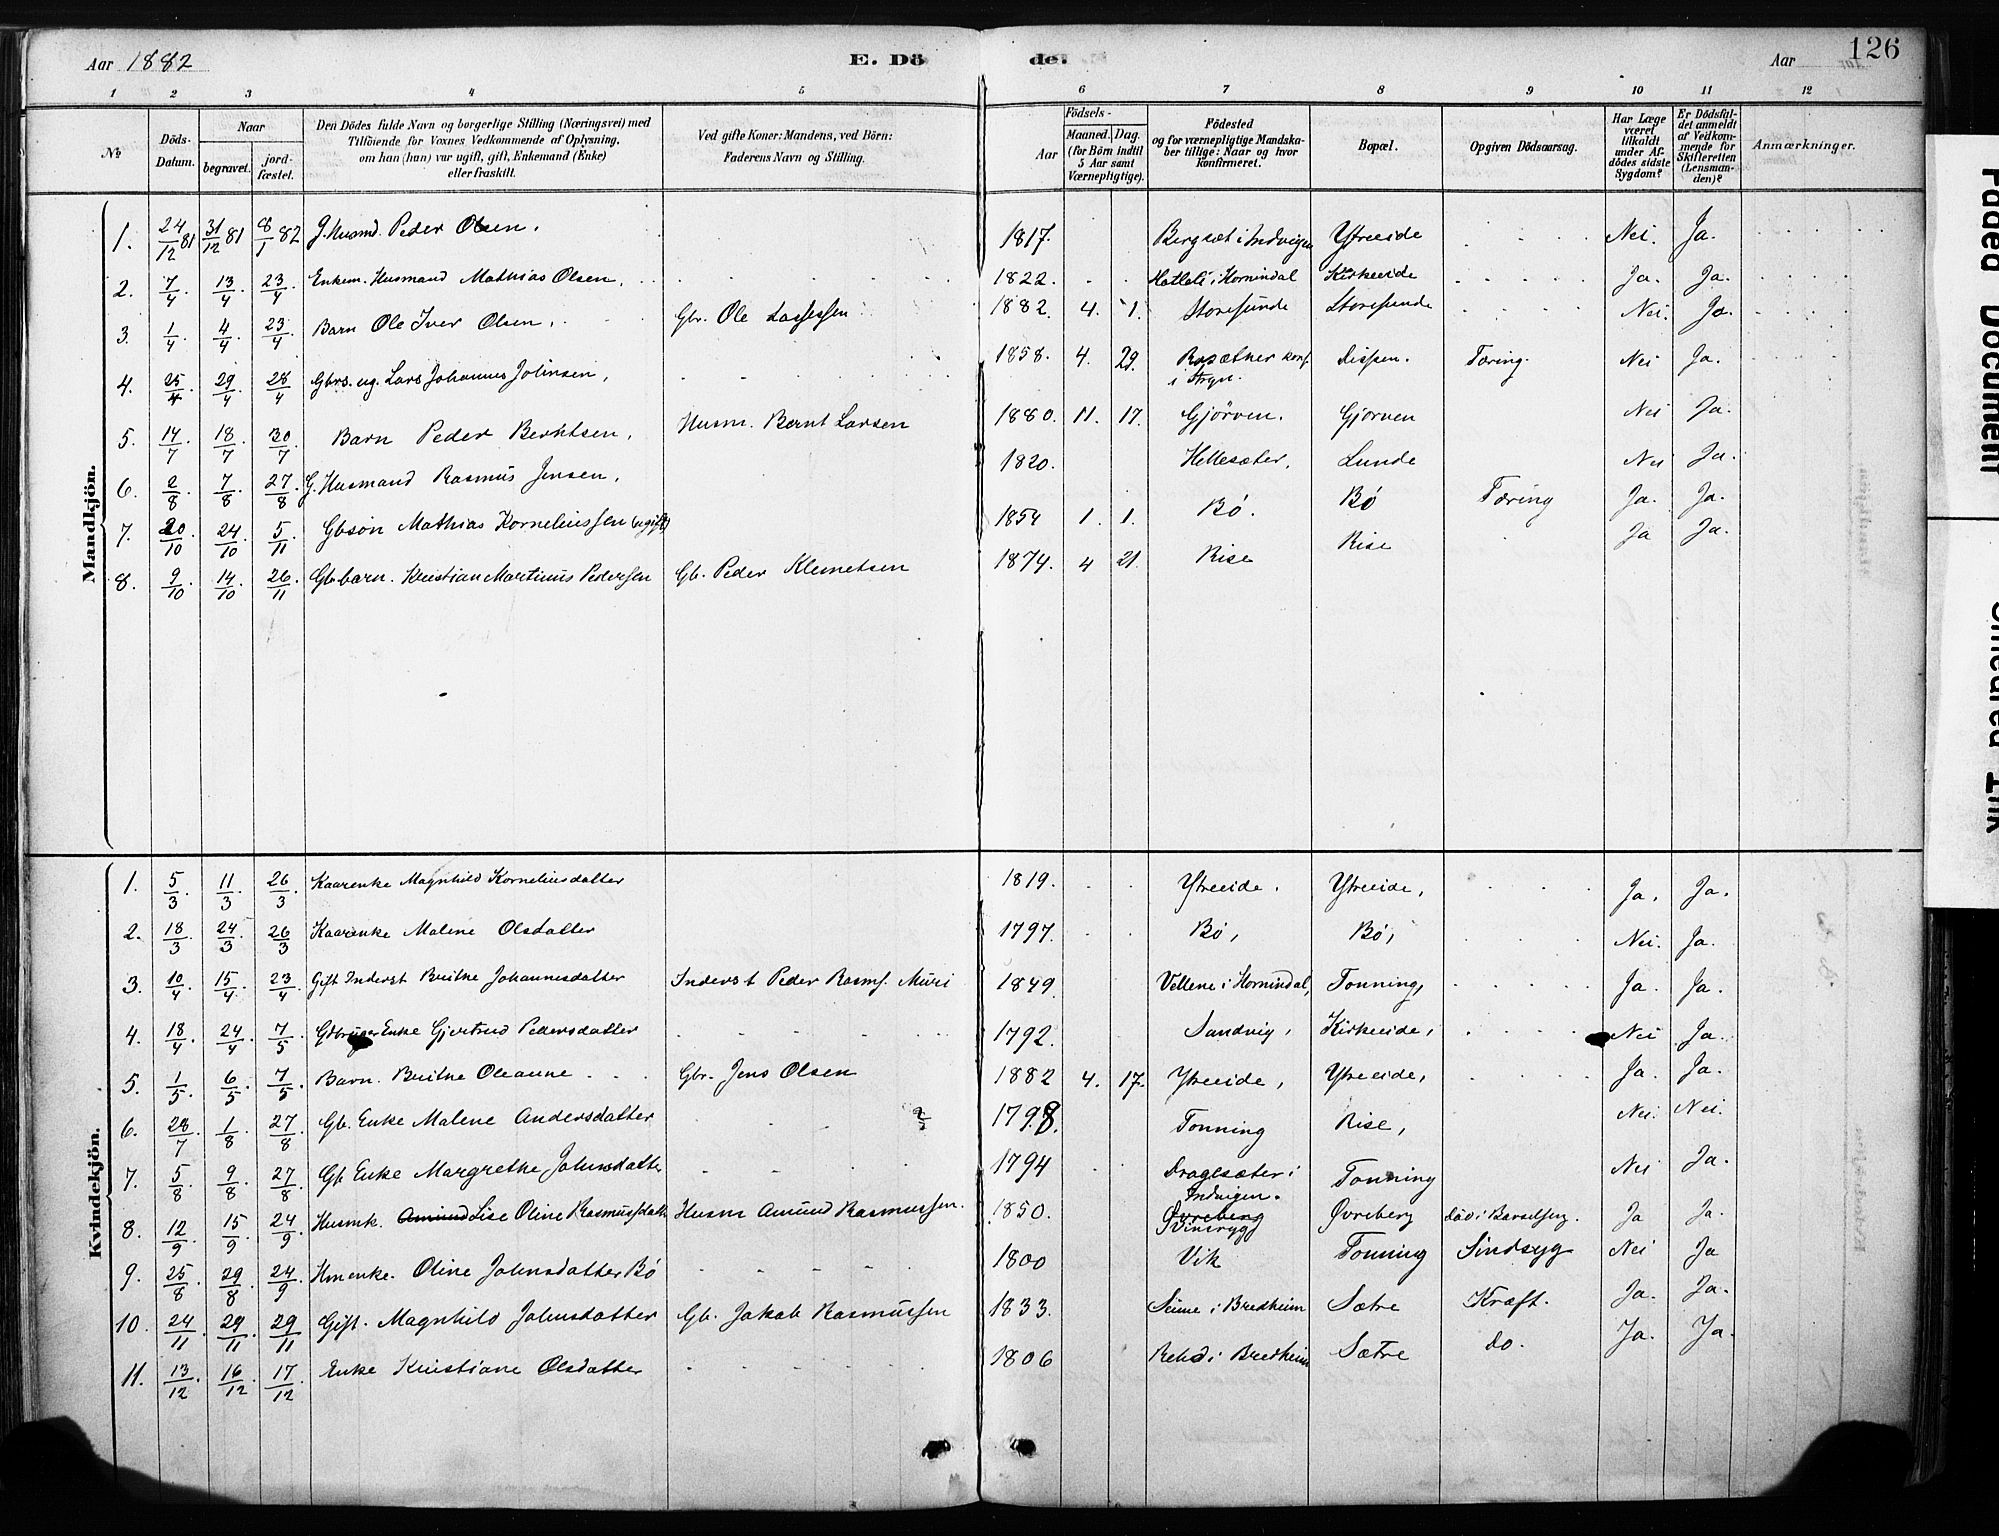 Aar 1882 E. Dö de. Aar 126
1 2 3 4 5 6 7 8 9 10 11 12
No Döds-Datum. Naar begravet. jord-fæstet. Den Dödes fulde Navn og borgerlige Stilling (Næringsvei) med Tilföiende for Voxnes Vedkommende af Oplysning, om han (hun) var ugift, gift, Enkemand (Enke) eller fraskilt. Ved gifte Koner: Mandens, ved Börn: Faderens Navn og Stilling. Födsels- Aar Maaned. Dag. (for Börn indtil 5 Aar samt Værnepligtige). Födested og for værnepligtige Mandskaber tillige: Naar og hvor Konfirmeret. Bopæl. Opgiven Dödsaarsag. Har Læge været tilkaldt under Afdödes sidste Sygdom? Er Dödsfaldet anmeldt af Vedkommende for Skifteretten (Lensmanden)? Anmærkninger.
Mandkjön.
1. 24/12 81 31/12 81 8/1 82 G. Husmd. Peder Olsen. 1817. Bergsæt i Indvigen Ytreeide Nei. Ja.
2. 7/4. 13/4. 23/4 Enkem. Husmand Mathias Olsen. 1822. i Hornindal Kirkeeide Ja. Ja.
3. 1/4 4/4 23/4 Barn Ole Iver Olsen. Gbr. Ole Lassessen 1882. 4. 1. Storesunde Storesunde Nei. Ja.
4. 25/4 29/4 28/4 Gbrs. ug. Lars Johannes Johnsen, 1858. 4. 29. konf. i Stryn. Dispen. Tæring. Nei Ja.
5. 14/7 18/7 30/7 Barn Peder Berntsen. Husm. Bernt Larsen 1880. 11. 17. Gjörven. Gjorven Nei Ja.
6. 2/8 7/8 27/8 G. Husmand Rasmus Jensen. 1820. Hellesæter, Lunde Nei Ja.
7. 20/10 24/10 5/11 Gbsøn Mathias Kornelius sen (ugift) 1854 1. 1. Bø. Bø Tæring Ja. Ja.
8. 9/10 14/10 26/11 Gbbarn. Kristian Martinus Pedersen Gb. Peder Klemetsen 1874. 4 21. Rise Rise Ja Ja.
Kvindekjön.
1. 5/3 11/3 26/3 Kaarenke Magnhild Korneliusdatter 1819. Ytreeide. Ytreeide, Ja. Ja.
2. 18/3 24/3 26/3 Kaarenke Malene Olsdatter 1797. Bø, Bø, Nei. Ja.
3. 10/4 15/4 23/4 Gift Inderst Brithe Johannesdatter Inderst Peder Rasms. Muri 1849. Vellene i Hornindal, Tonning, Ja. Ja.
4. 18/4 24/4 7/5 Gdbruger Enke Gjertrud Pedersdatter 1792. Sandvig, Kirkeeide, Nei Ja.
5. 1/5 6/5 7/5 Barn. Brithe Oleanne Gbr. Jens Olsen 1882 4. 17. Ytreeide, Ytreeide, Ja. Ja.
6. 28/7 1/8 27/8 Gb. Enke Malene Andersdatter 1798. Tonning Rise, Nei. Nei.
7. 5/8 9/8 27/8 Gb Enke Margrethe Johnsdatter 1794 Dragesæter i Indvigen. Tonning Nei Ja.
8. 12/9 15/9 24/9 Husmk. Amund Lise Oline Rasmussdatt Husm Amund Rasmussen. 1850. Øvreberg Vinsrygg Øvreberg Död i Barselseng. Ja Ja.
9. 25/8 29/8 24/9 Hmenke. Oline Johnsdatter Bö 1800 Vik Tonning Sindsyg Nei Ja
10. 24/11 29/11 29/11 Gift. Magnhild Johnsdatter Gb. Jakob Rasmussen 1833. Seime i Bredheim Sætre Kræft. Ja. Ja.
11. 13/12 16/12 17/12 Enke Kristiane Olsdatter 1806 i Bredheim Sætre do. Ja. Ja.
Faded Document
Smeared Ink